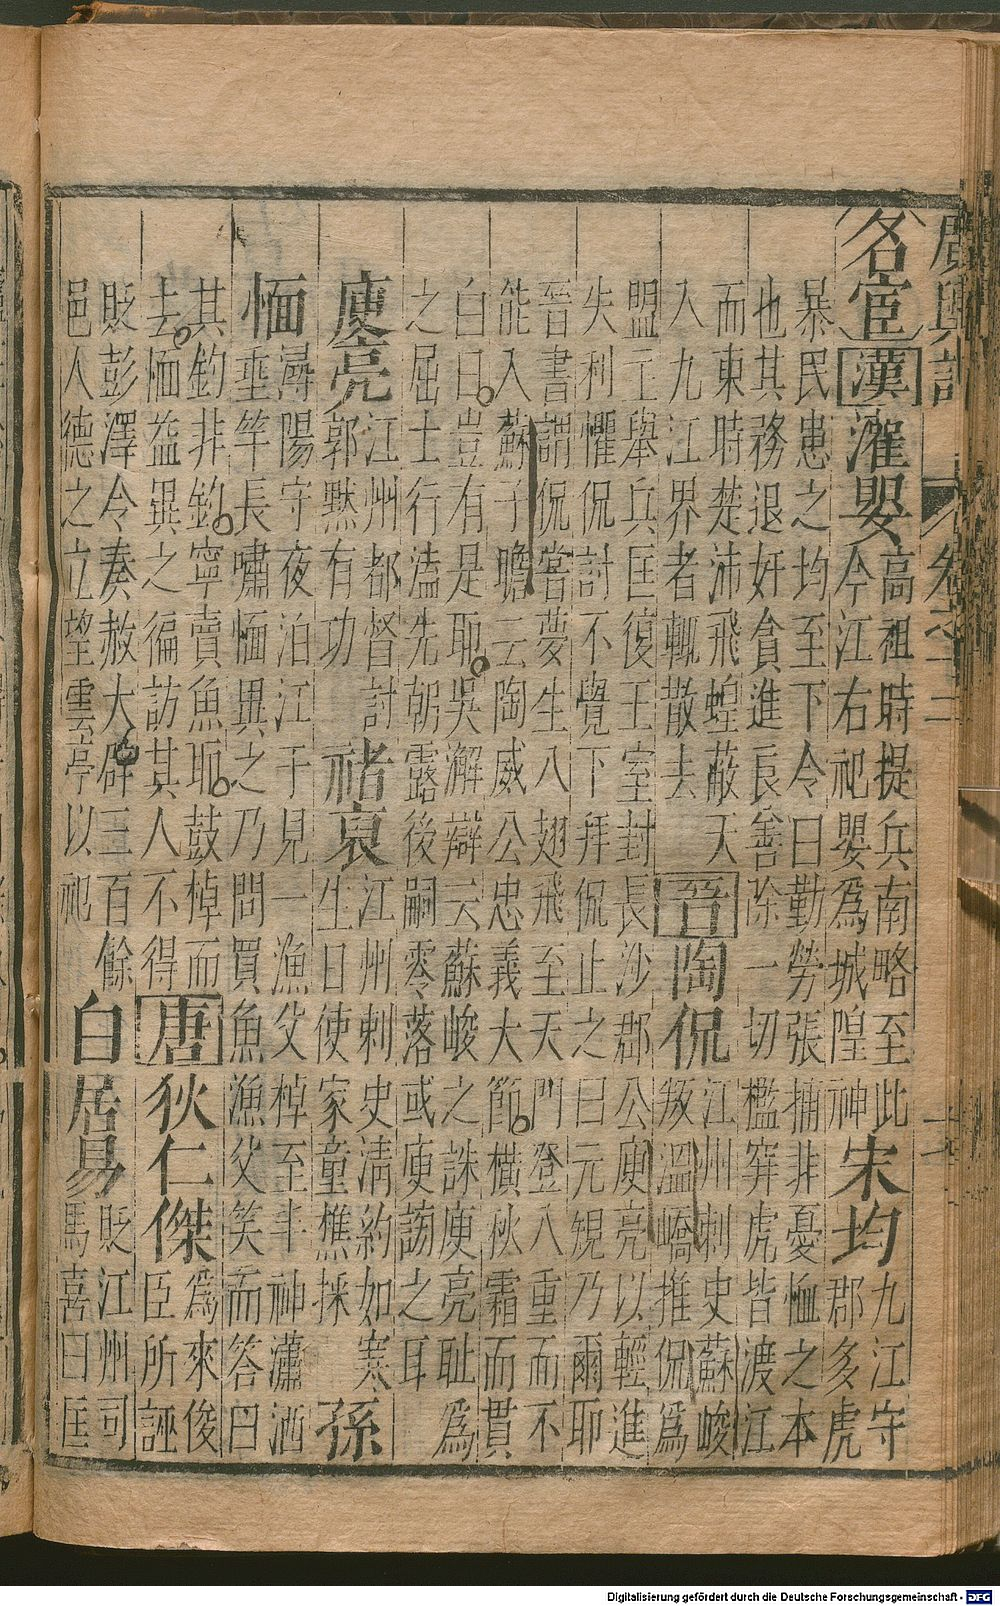 廣輿記 卷之十二
名宦 漢 灌嬰
高祖時提兵南略至此
今江右祀嬰為城隍神
宋均
九江守
郡多虎
暴民患之均至下令曰勤勞張捕非憂恤之本
也其務退奸貪進良善除一切檻穽虎皆渡江
而東時楚沛飛蝗蔽天
入九江界者輒散去
晉 陶侃
江州刺史蘇峻
叛溫嶠推侃為
盟主舉兵匡復王室封長沙郡公庾亮以輕進
失利懼侃討不覺下拜侃止之曰元規乃爾耶
晉書謂侃嘗夢生八翅飛至天門登八重而不
能入蘇子瞻云陶威公忠義大節橫秋霜而貫
白日豈有是耶吳澥辯云蘇峻之誅庾亮耻為
之屈士行溘先朝露後嗣零落或庾謗之耳
庾亮
江州都督討
郭默有功
褚裒
江州刺史清約如寒
生日使家童樵採
孫
愐
潯陽守夜泊江干見一漁父棹至丰神瀟洒
垂竿長嘯愐異之乃問買魚漁父笑而答曰
其釣非釣寧賣魚耶鼓棹而
去愐益異之徧訪其人不得
唐 狄仁傑
為來俊
臣所誣
貶彭澤令奏赦大辟三百餘
邑人德之立望雲亭以祀
白居易
貶江州司
馬喜曰匡
Digitalisierung gefördert durch die Deutsche Forschungsgemeinschaft - DFG